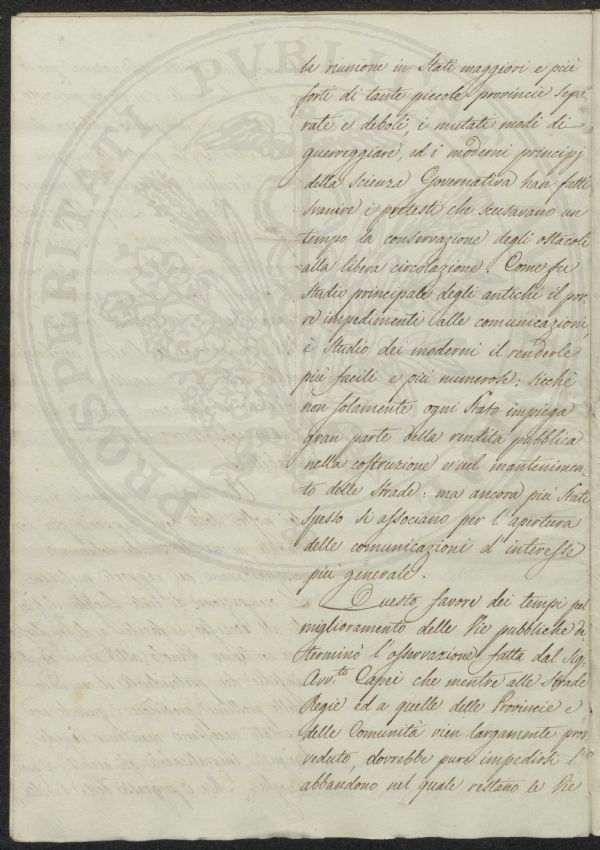 PROSPERITATI PUBLI
la riunione in Stati maggiori e più
forti di tante piccole provincie sepa-
rate e deboli, i mutati modi di
guerreggiare, ed i moderni principj
della scienza Governativa han fatti
svanire i pretesti che scusavano un
tempo la conservazione degli ostacoli
alla libera circolazione. Come fu
studio principale degli antichi il por-
re impedimenti alle comunicazioni,
è studio dei moderni il renderle
più facili e più numerose: sicchè
non solamente ogni Stato impiega
gran parte della rendita pubblica
nella costruzione e nel mantenimen-
to delle Strade: ma ancora più Stati
spesso si associano per l'apertura
delle comunicazioni d'interesse
più generale.
Questo favore dei tempi pel
miglioramento delle Vie pubbliche de-
terminò l'osservazione fatta dal Sig.
Avv.to Capei che mentre alle Strade
Regie ed a quelle delle Provincie e
delle Comunità vien largamente prov-
veduto, dovrebbe pure impedirsi l'
abbandono nel quale restano le Vie